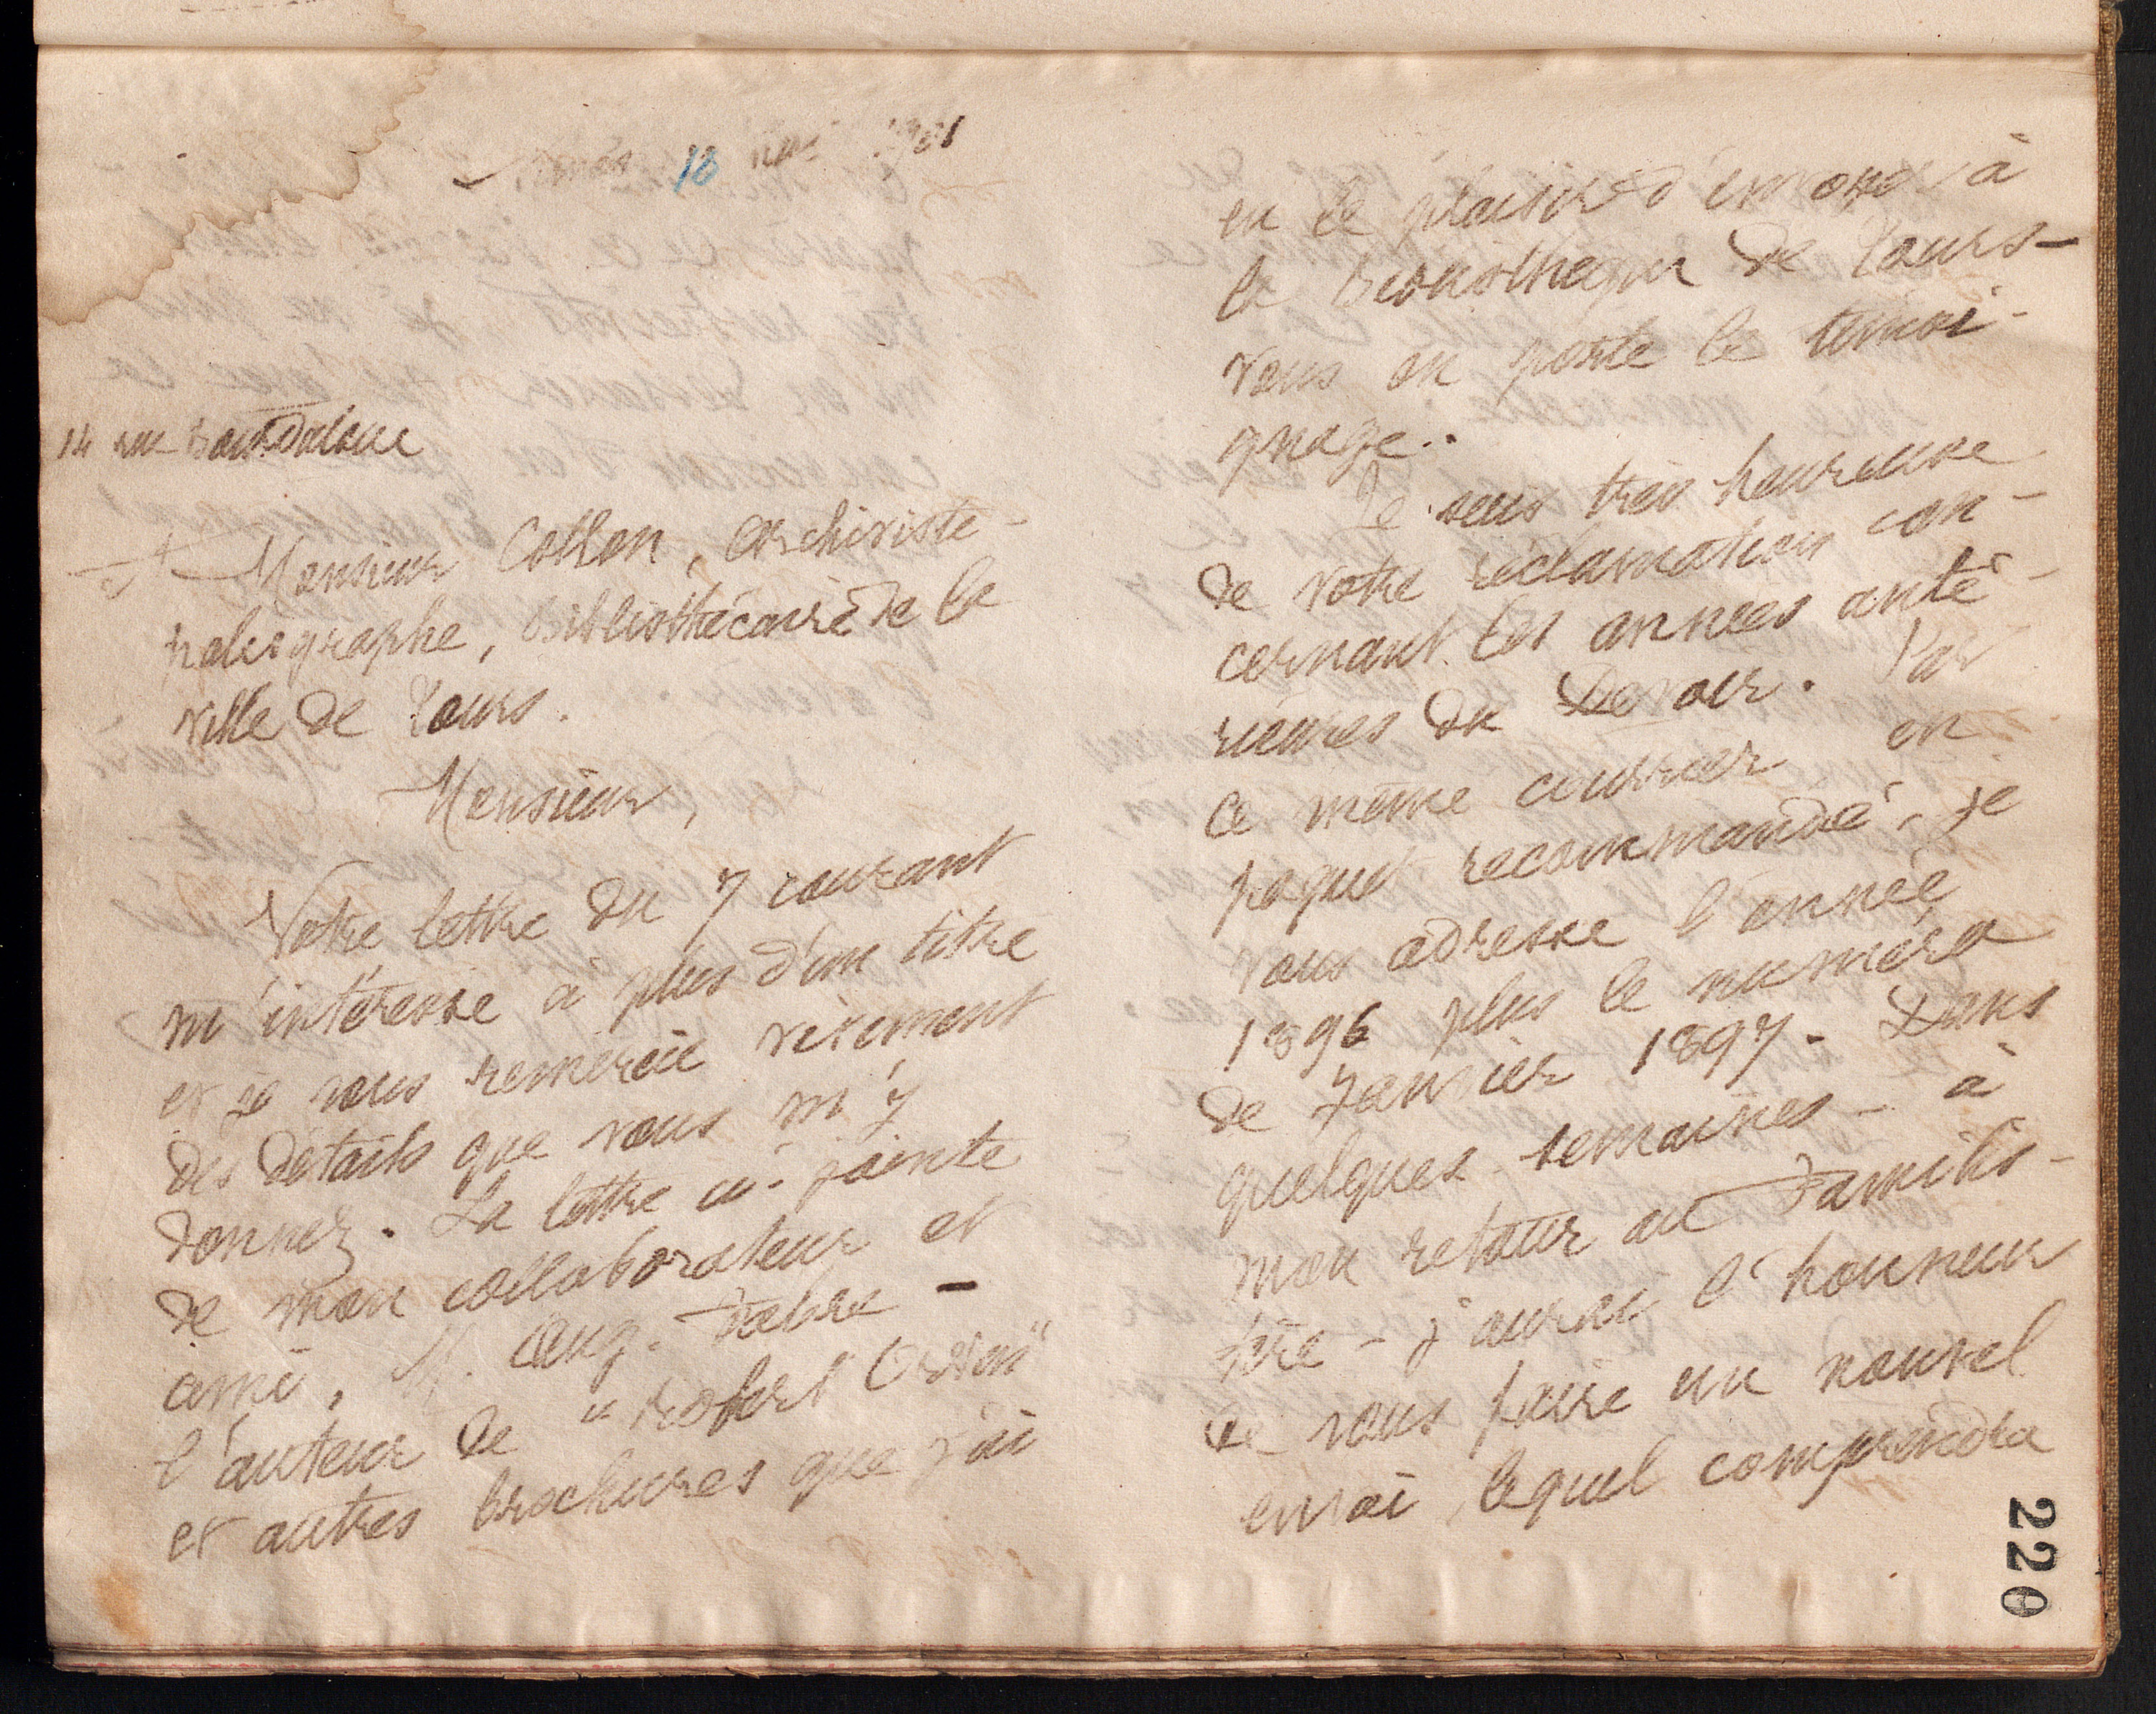 Nîmes 18 mai 1901
14 rue Bourdaloue
A Monsieur Collon, archiviste-
paléographe, bibliothécaire de la
ville de Tours.
Monsieur,
Votre lettre du 7 courant
m'intéresse à plus d'un titre
et je vous remercie vivement
des détails que vous m'y
donnez. La lettre ci-jointe
de mon collaborateur et
ami, M. Aug. Fabre -
l'auteur de "Robert Owen"
et autres brochures que j'ai
eu le plaisir d'envoyer à
la bibliothèque de Tours -
vous en porte le témoi-
gnage.
Je suis très heureuse
de votre réclamation con-
cernant les années anté-
rieures du Devoir. Par
ce même courrier en
paquet recommandé, je
vous adresse l'année
1896 plus le numéro
de Janvier 1897. Dans
quelques semaines - à
mon retour au Familis-
tère - j'aurai l'honneur
de vous faire un nouvel
envoi, lequel comprendra
220